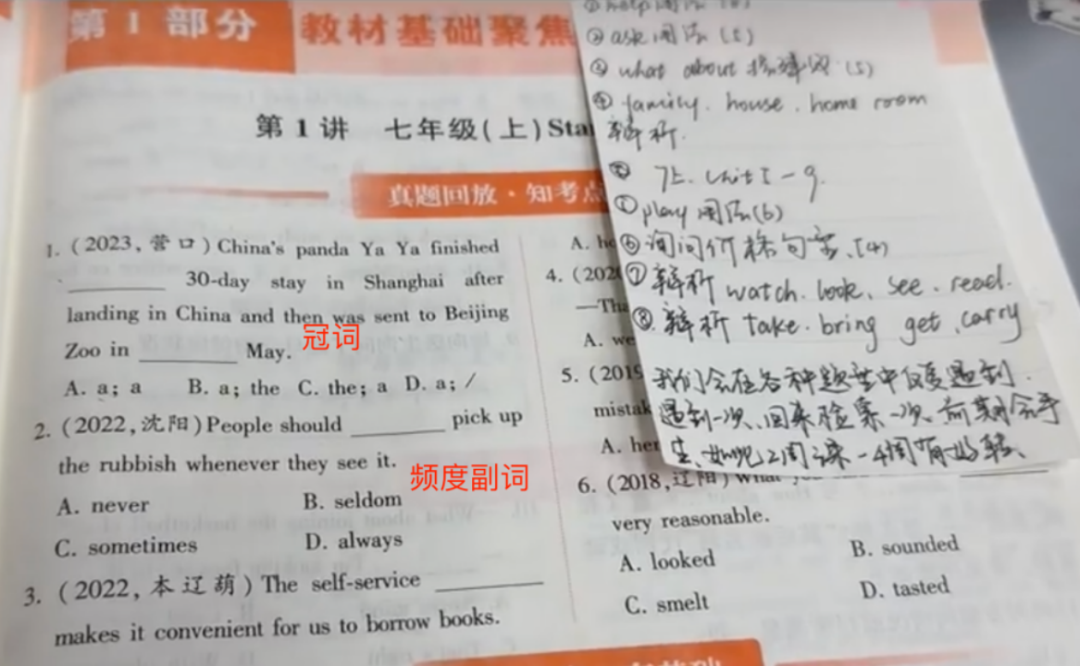 第1部分 教材基础聚焦
第1讲 七年级(上) Sta
真题回放·知考点
1. (2023,营口) China's panda Ya Ya finished
________ 30-day stay in Shanghai after
landing in China and then was sent to Beijing
Zoo in ________ May.
冠词
A. a; a B. a; the C. the; a D. a; /
2. (2022,沈阳) People should ________ pick up
the rubbish whenever they see it.
频度副词
A. never B. seldom
C. sometimes D. always
3. (2022,本辽葫) The self-service ________
makes it convenient for us to borrow books.
A. h
4. (202
—Tha
A. we
5. (201
mistak
A. her
6. (2018,辽阳) What
very reasonable.
A. looked B. sounded
C. smelt D. tasted
help用法
② ask用法 (5)
③ what about (5)
④ family. house. home room
辨析.
7上. Unit 1-9.
① play用法(6)
⑥ 询问价格句型.(4)
⑦ 辨析 watch. look. see. read.
⑧. 辨析 take. bring get. carry
我们会在各种题型中反复遇到.
遇到一次.回来检索一次.前期会手
生.